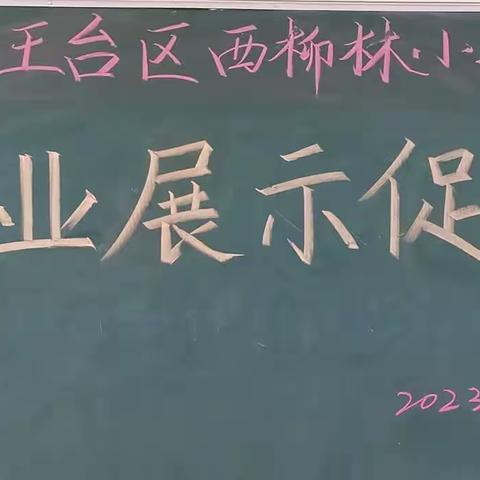 王台区西柳林小
业展示促
2023